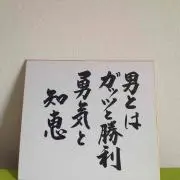 男とは
ガッツと勝利
勇気と
知恵